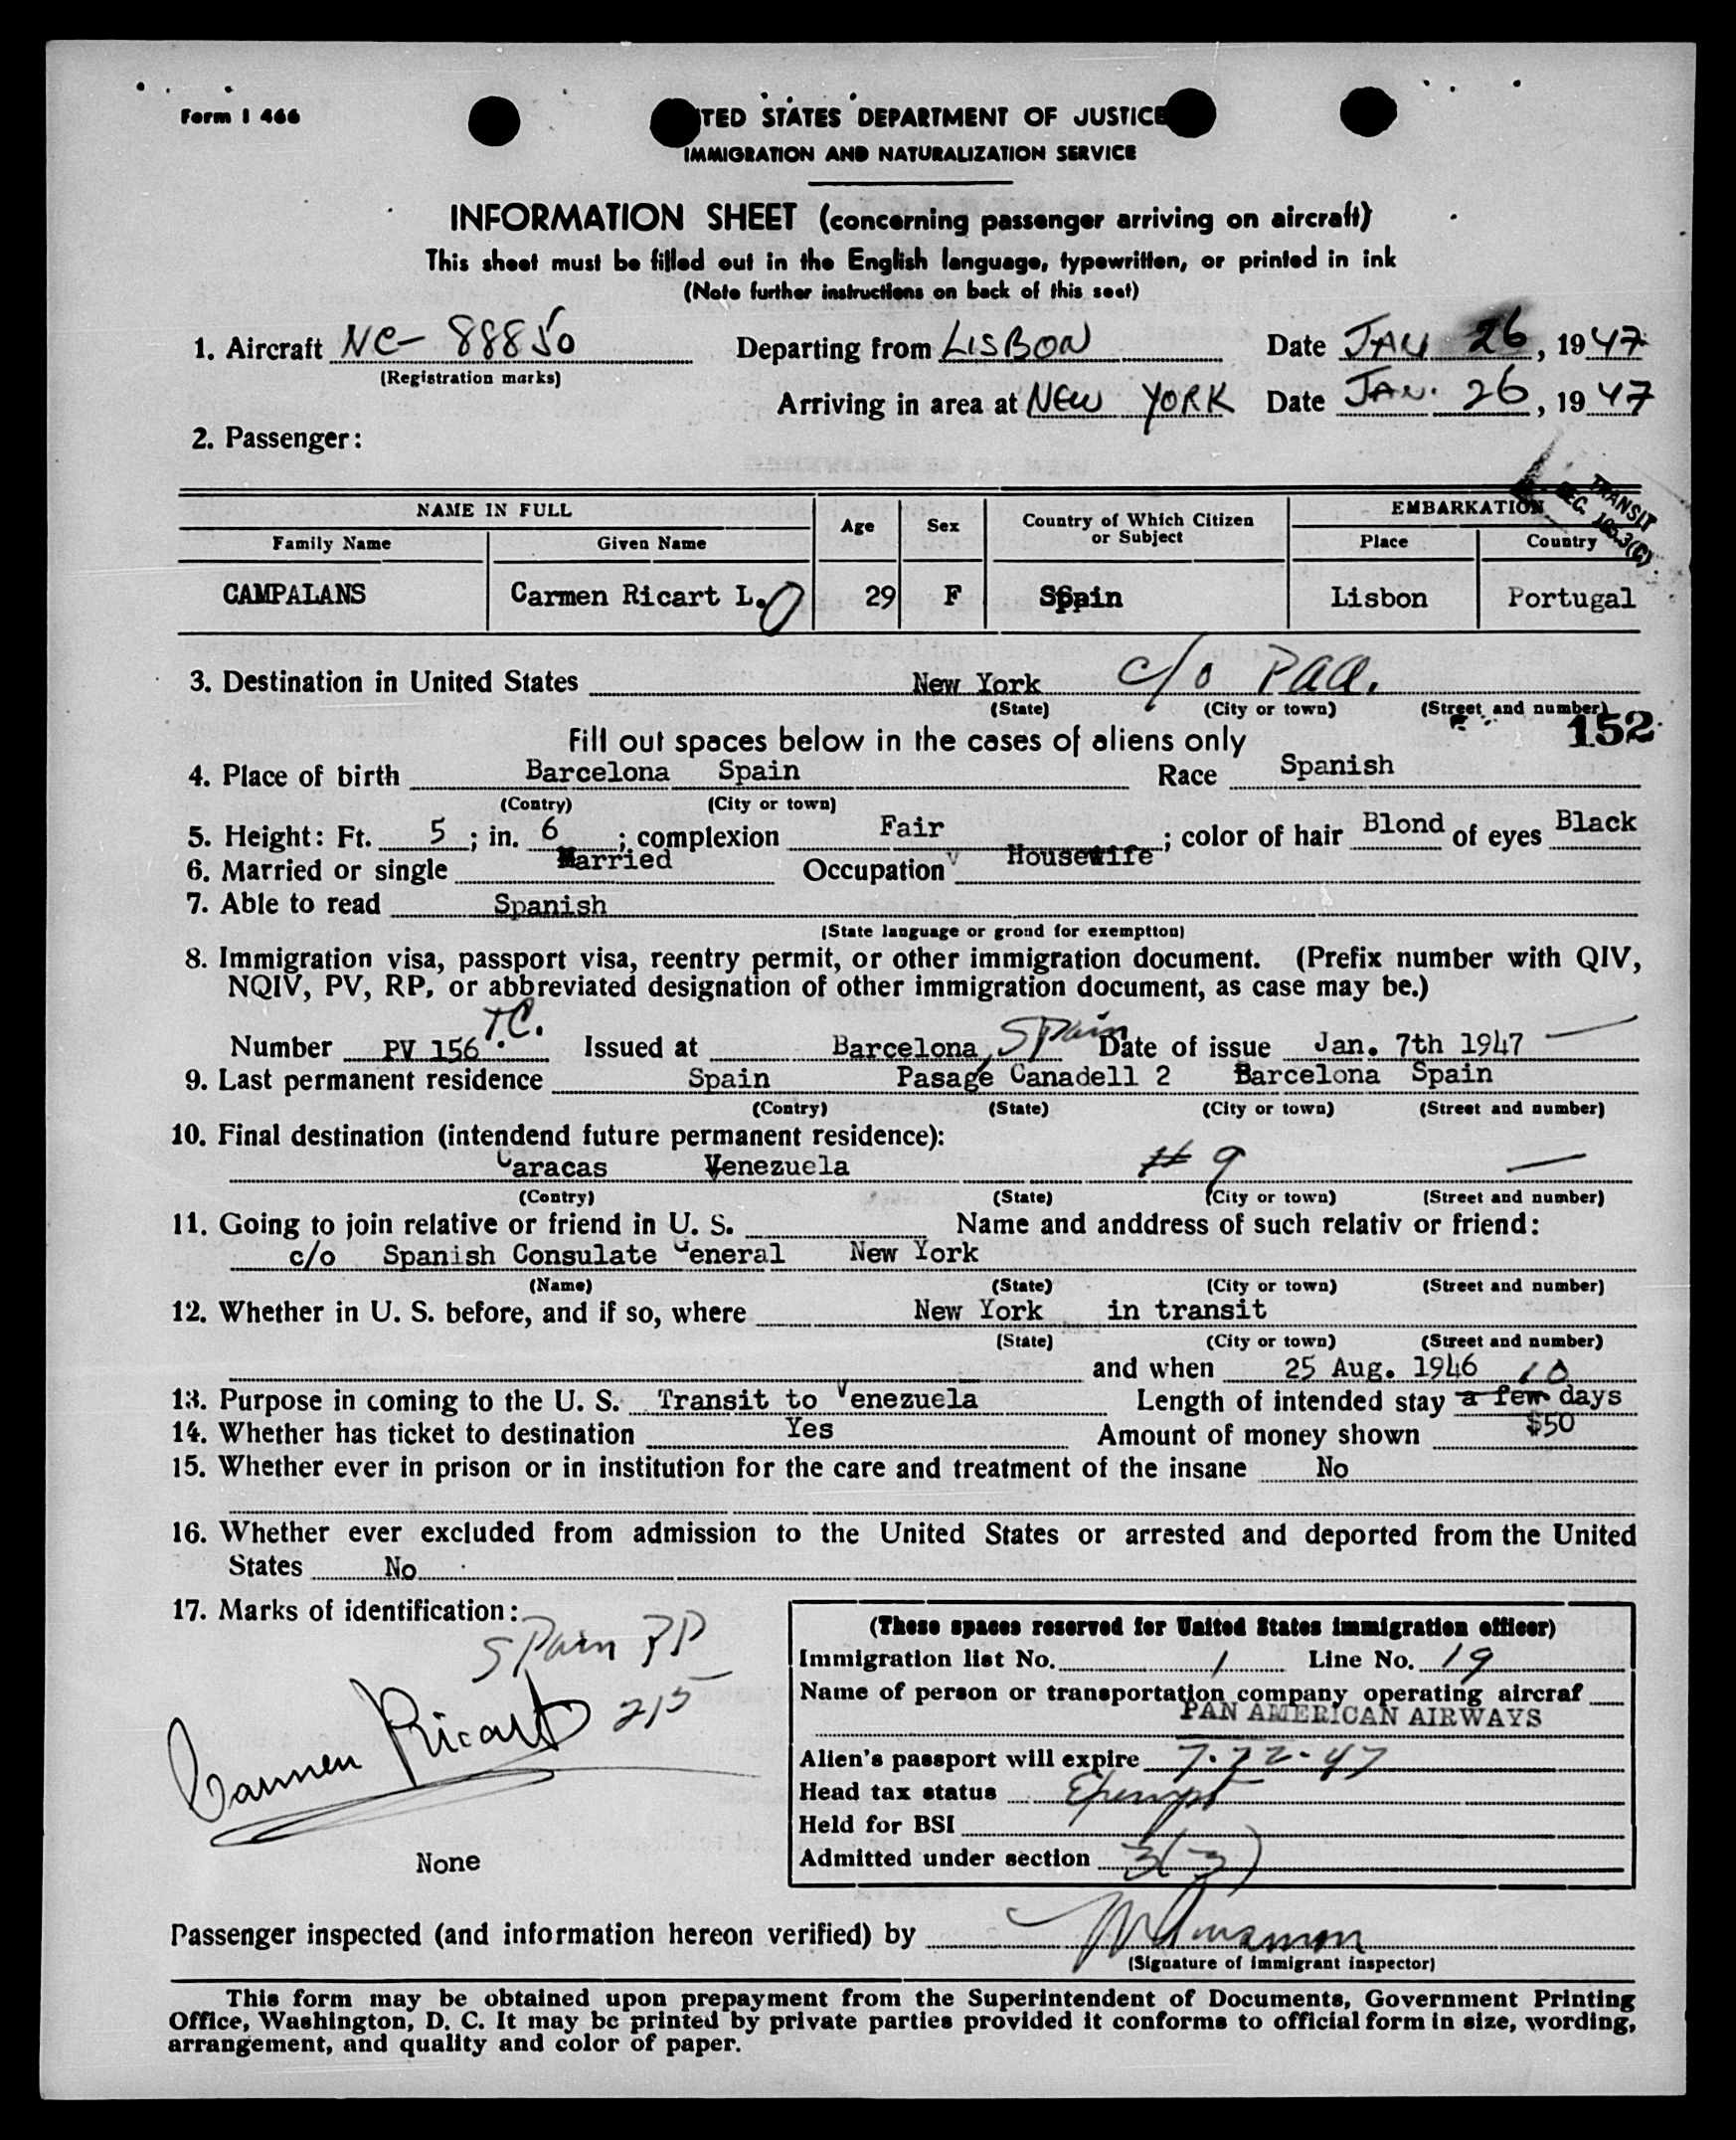 Form I 466
TED STATES DEPARTMENT OF JUSTICE
IMMIGRATION AND NATURALIZATION SERVICE
INFORMATION SHEET (concerning passenger arriving on aircraft)
This sheet must be filled out in the English language, typewritten, or printed in ink
(Note further instructions on back of this seet)
1. Aircraft NC- 88850 Departing from LISBON Date JAN 26, 1947
(Registration marks)
Arriving in area at NEW YORK Date JAN. 26, 1947
2. Passenger:
TRANSIT
SEC. 165.3(C)
NAME IN FULL Age Sex Country of Which Citizen or Subject EMBARKATION
Family Name Given Name Place Country
CAMPALANS Carmen Ricart L. 29 F Spain Lisbon Portugal
3. Destination in United States New York c/o PAA.
(State) (City or town) (Street and number)
152
Fill out spaces below in the cases of aliens only
4. Place of birth Barcelona Spain Race Spanish
(Contry) (City or town)
5. Height: Ft. 5; in. 6; complexion Fair; color of hair Blond of eyes Black
6. Married or single Married Occupation Housewife
7. Able to read Spanish
(State language or grond for exemptton)
8. Immigration visa, passport visa, reentry permit, or other immigration document. (Prefix number with QIV,
NQIV, PV, RP, or abbreviated designation of other immigration document, as case may be.)
Number PV 156 T.C. Issued at Barcelona, Spain Date of issue Jan. 7th 1947
9. Last permanent residence Spain Pasage Canadell 2 Barcelona Spain
(Contry) (State) (City or town) (Street and number)
10. Final destination (intendend future permanent residence):
Caracas Venezuela # 9 —
(Contry) (State) (City or town) (Street and number)
11. Going to join relative or friend in U. S. Name and anddress of such relativ or friend:
c/o Spanish Consulate General New York
(Name) (State) (City or town) (Street and number)
12. Whether in U. S. before, and if so, where New York in transit
(State) (City or town) (Street and number)
and when 25 Aug. 1946
13. Purpose in coming to the U. S. Transit to Venezuela Length of intended stay 10 a few days
14. Whether has ticket to destination Yes Amount of money shown $50
15. Whether ever in prison or in institution for the care and treatment of the insane No
16. Whether ever excluded from admission to the United States or arrested and deported from the United
States No
17. Marks of identification:
Spain PP
215
Carmen Ricart
None
(These spaces reserved for United States immigration officer)
Immigration list No. 1 Line No. 19
Name of person or transportation company operating aircraf
PAN AMERICAN AIRWAYS
Alien's passport will expire 7-22-47
Head tax status Exempt
Held for BSI
Admitted under section 3(3)
Passenger inspected (and information hereon verified) by
(Signature of immigrant inspector)
This form may be obtained upon prepayment from the Superintendent of Documents, Government Printing
Office, Washington, D. C. It may be printed by private parties provided it conforms to official form in size, wording,
arrangement, and quality and color of paper.